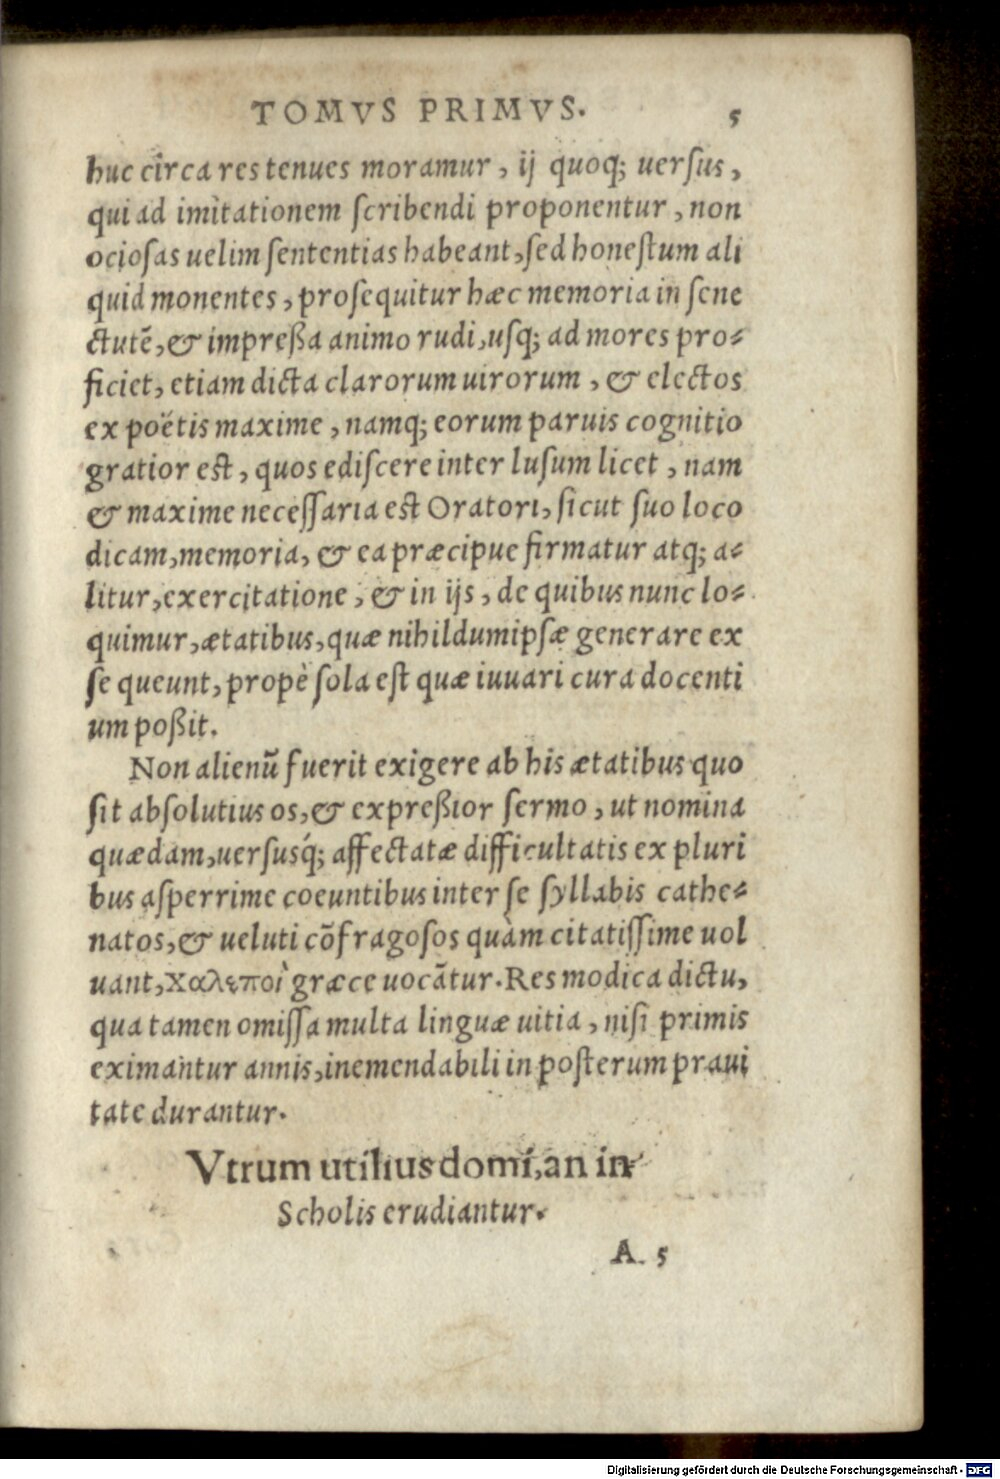 TOMVS PRIMVS. 5
huc circa res tenues moramur, ij quoq; uersus,
qui ad imitationem scribendi proponentur, non
ociosas uelim sententias habeant, sed honestum ali
quid monentes, prosequitur hæc memoria in sene
ctutẽ, & impreßa animo rudi, usq; ad mores pro-
ficiet, etiam dicta clarorum uirorum, & electos
ex poëtis maxime, namq; eorum paruis cognitio
gratior est, quos ediscere inter lusum licet, nam
& maxime necessaria est Oratori, sicut suo loco
dicam, memoria, & ea præcipue firmatur atq; a-
litur, exercitatione, & in ijs, de quibus nunc lo-
quimur, ætatibus, quæ nihildum ipsæ generare ex
se queunt, propè sola est quæ iuuari cura docenti
um poßit.
Non alienũ fuerit exigere ab his ætatibus quo
sit absolutius os, & expreßior sermo, ut nomina
quædam, uersusq́; affectatæ difficultatis ex pluri
bus asperrime coeuntibus inter se syllabis cathe-
natos, & ueluti cõfragosos quàm citatissime uol
uant, Χαλεποὶ græce uocãtur. Res modica dictu,
qua tamen omissa multa linguæ uitia, nisi primis
eximantur annis, inemendabili in posterum praui
tate durantur.
Vtrum utilius domi, an in
Scholis erudiantur.
A 5
Digitalisierung gefördert durch die Deutsche Forschungsgemeinschaft - DFG